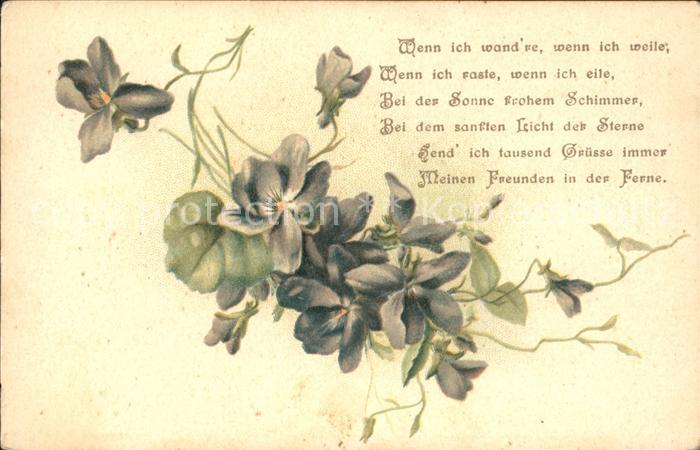 Wenn ich wand're, wenn ich weile,
Wenn ich raste, wenn ich eile,
Bei der Sonne frohem Schimmer,
Bei dem sanften Licht der Sterne
Send' ich tausend Grüsse immer
Meinen Freunden in der Ferne.
copy protection ** Kopierschutz